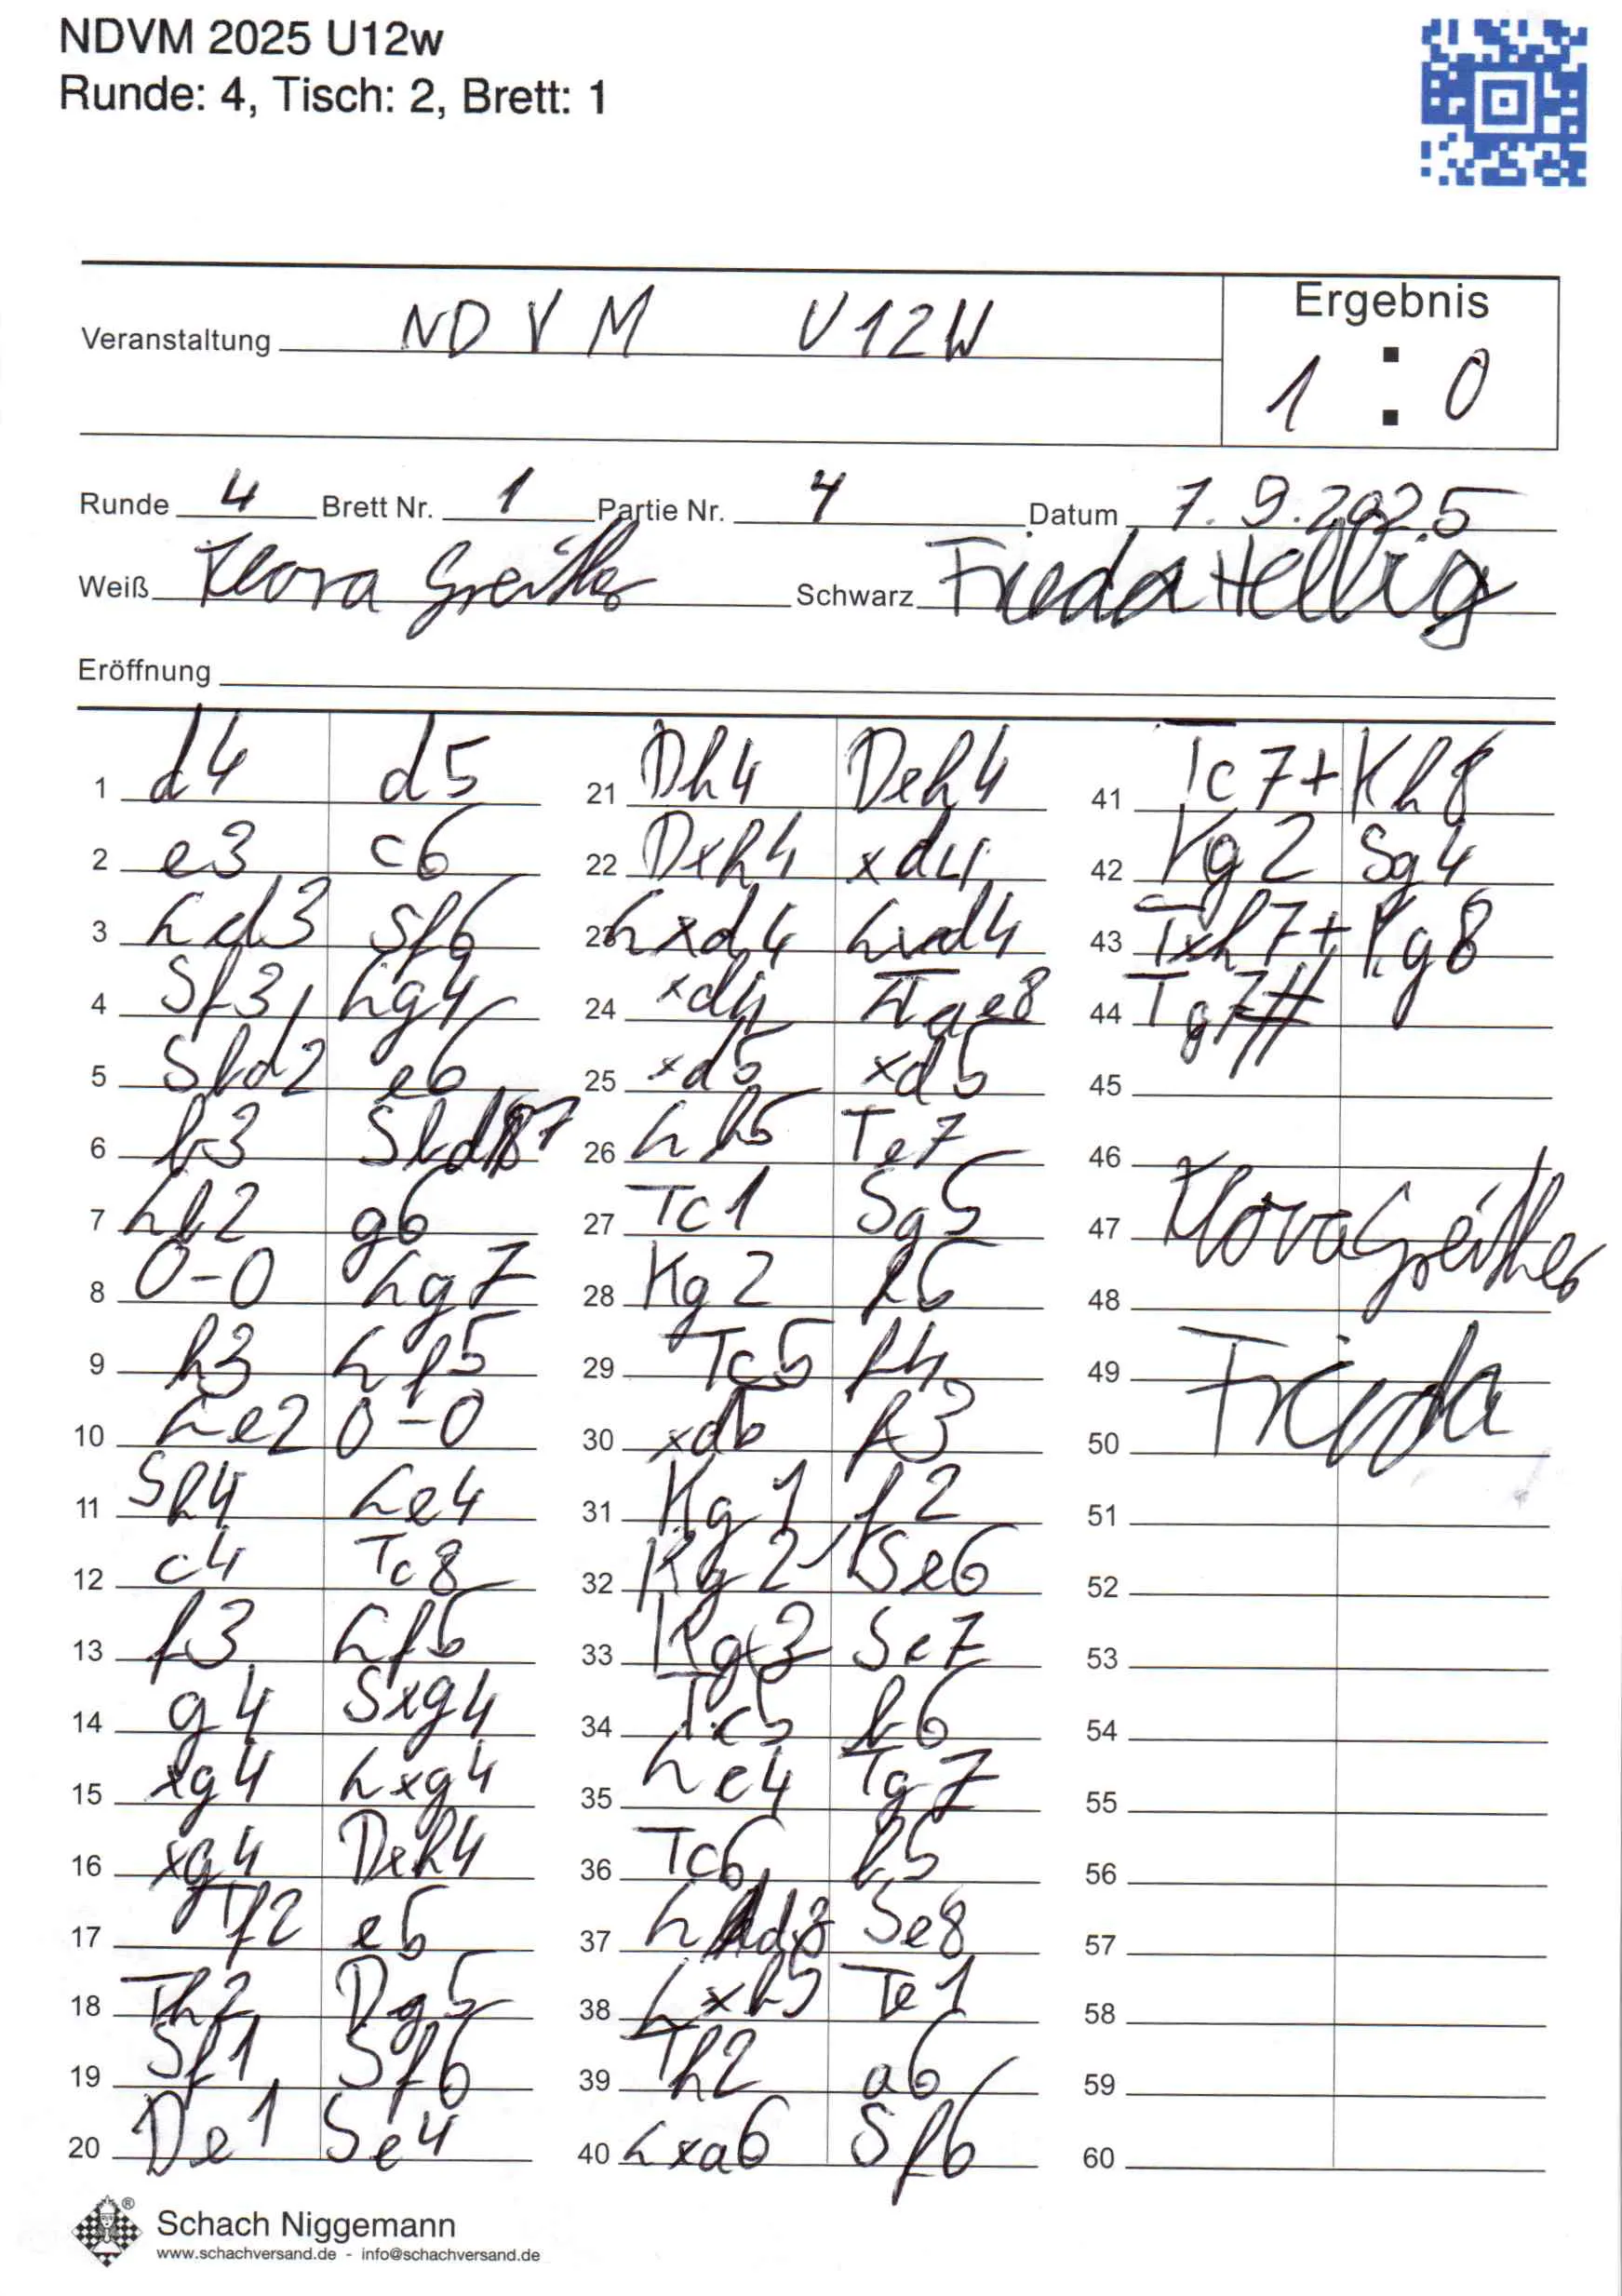 NDVM 2025 U12w
Runde: 4, Tisch: 2, Brett: 1
Ergebnis
Veranstaltung NDVM U12W
1 : 0
Runde 4 Brett Nr. 1 Partie Nr. 4 Datum 7.9.2025
Weiß Klara Greither Schwarz Frieda Hellbig
Eröffnung
1 d4 d5
2 e3 c6
3 Ld3 Sf6
4 Sf3 Lg4
5 Sbd2 e6
6 b3 Sbd7
7 Lb2 g6
8 0-0 Lg7
9 h3 Lf5
10 Le2 0-0
11 Sh4 Le4
12 c4 Tc8
13 f3 Lf5
14 g4 Sxg4
15 xg4 Lxg4
16 xg4 Dxh4
17 Tf2 e5
18 Th2 Dg5
19 Sf1 Sf6
20 De1 Se4
21 Dh4 Dxh4
22 Dxh4 xd4
23 Lxd4 Lxd4
24 xd4 Tae8
25 xd5 xd5
26 Lb5 Te7
27 Tc1 Sg5
28 Kg2 f5
29 Tc5 f4
30 xd5 f3
31 Kg1 f2
32 Kg2 Se6
33 Kg3 Sc7
34 Tc5 b6
35 Lc4 Tg7
36 Tc6 b5
37 Ld3 Se8
38 Lxb5 Te1
39 Th2 a6
40 Lxa6 Sf6
41 Tc7+ Kh8
42 Kg2 Sg4
43 Txh7+ Kg8
44 Tg7#
45
46
47 Klara Greither
48
49 Frieda
50
51
52
53
54
55
56
57
58
59
60
Schach Niggemann
www.schachversand.de - info@schachversand.de